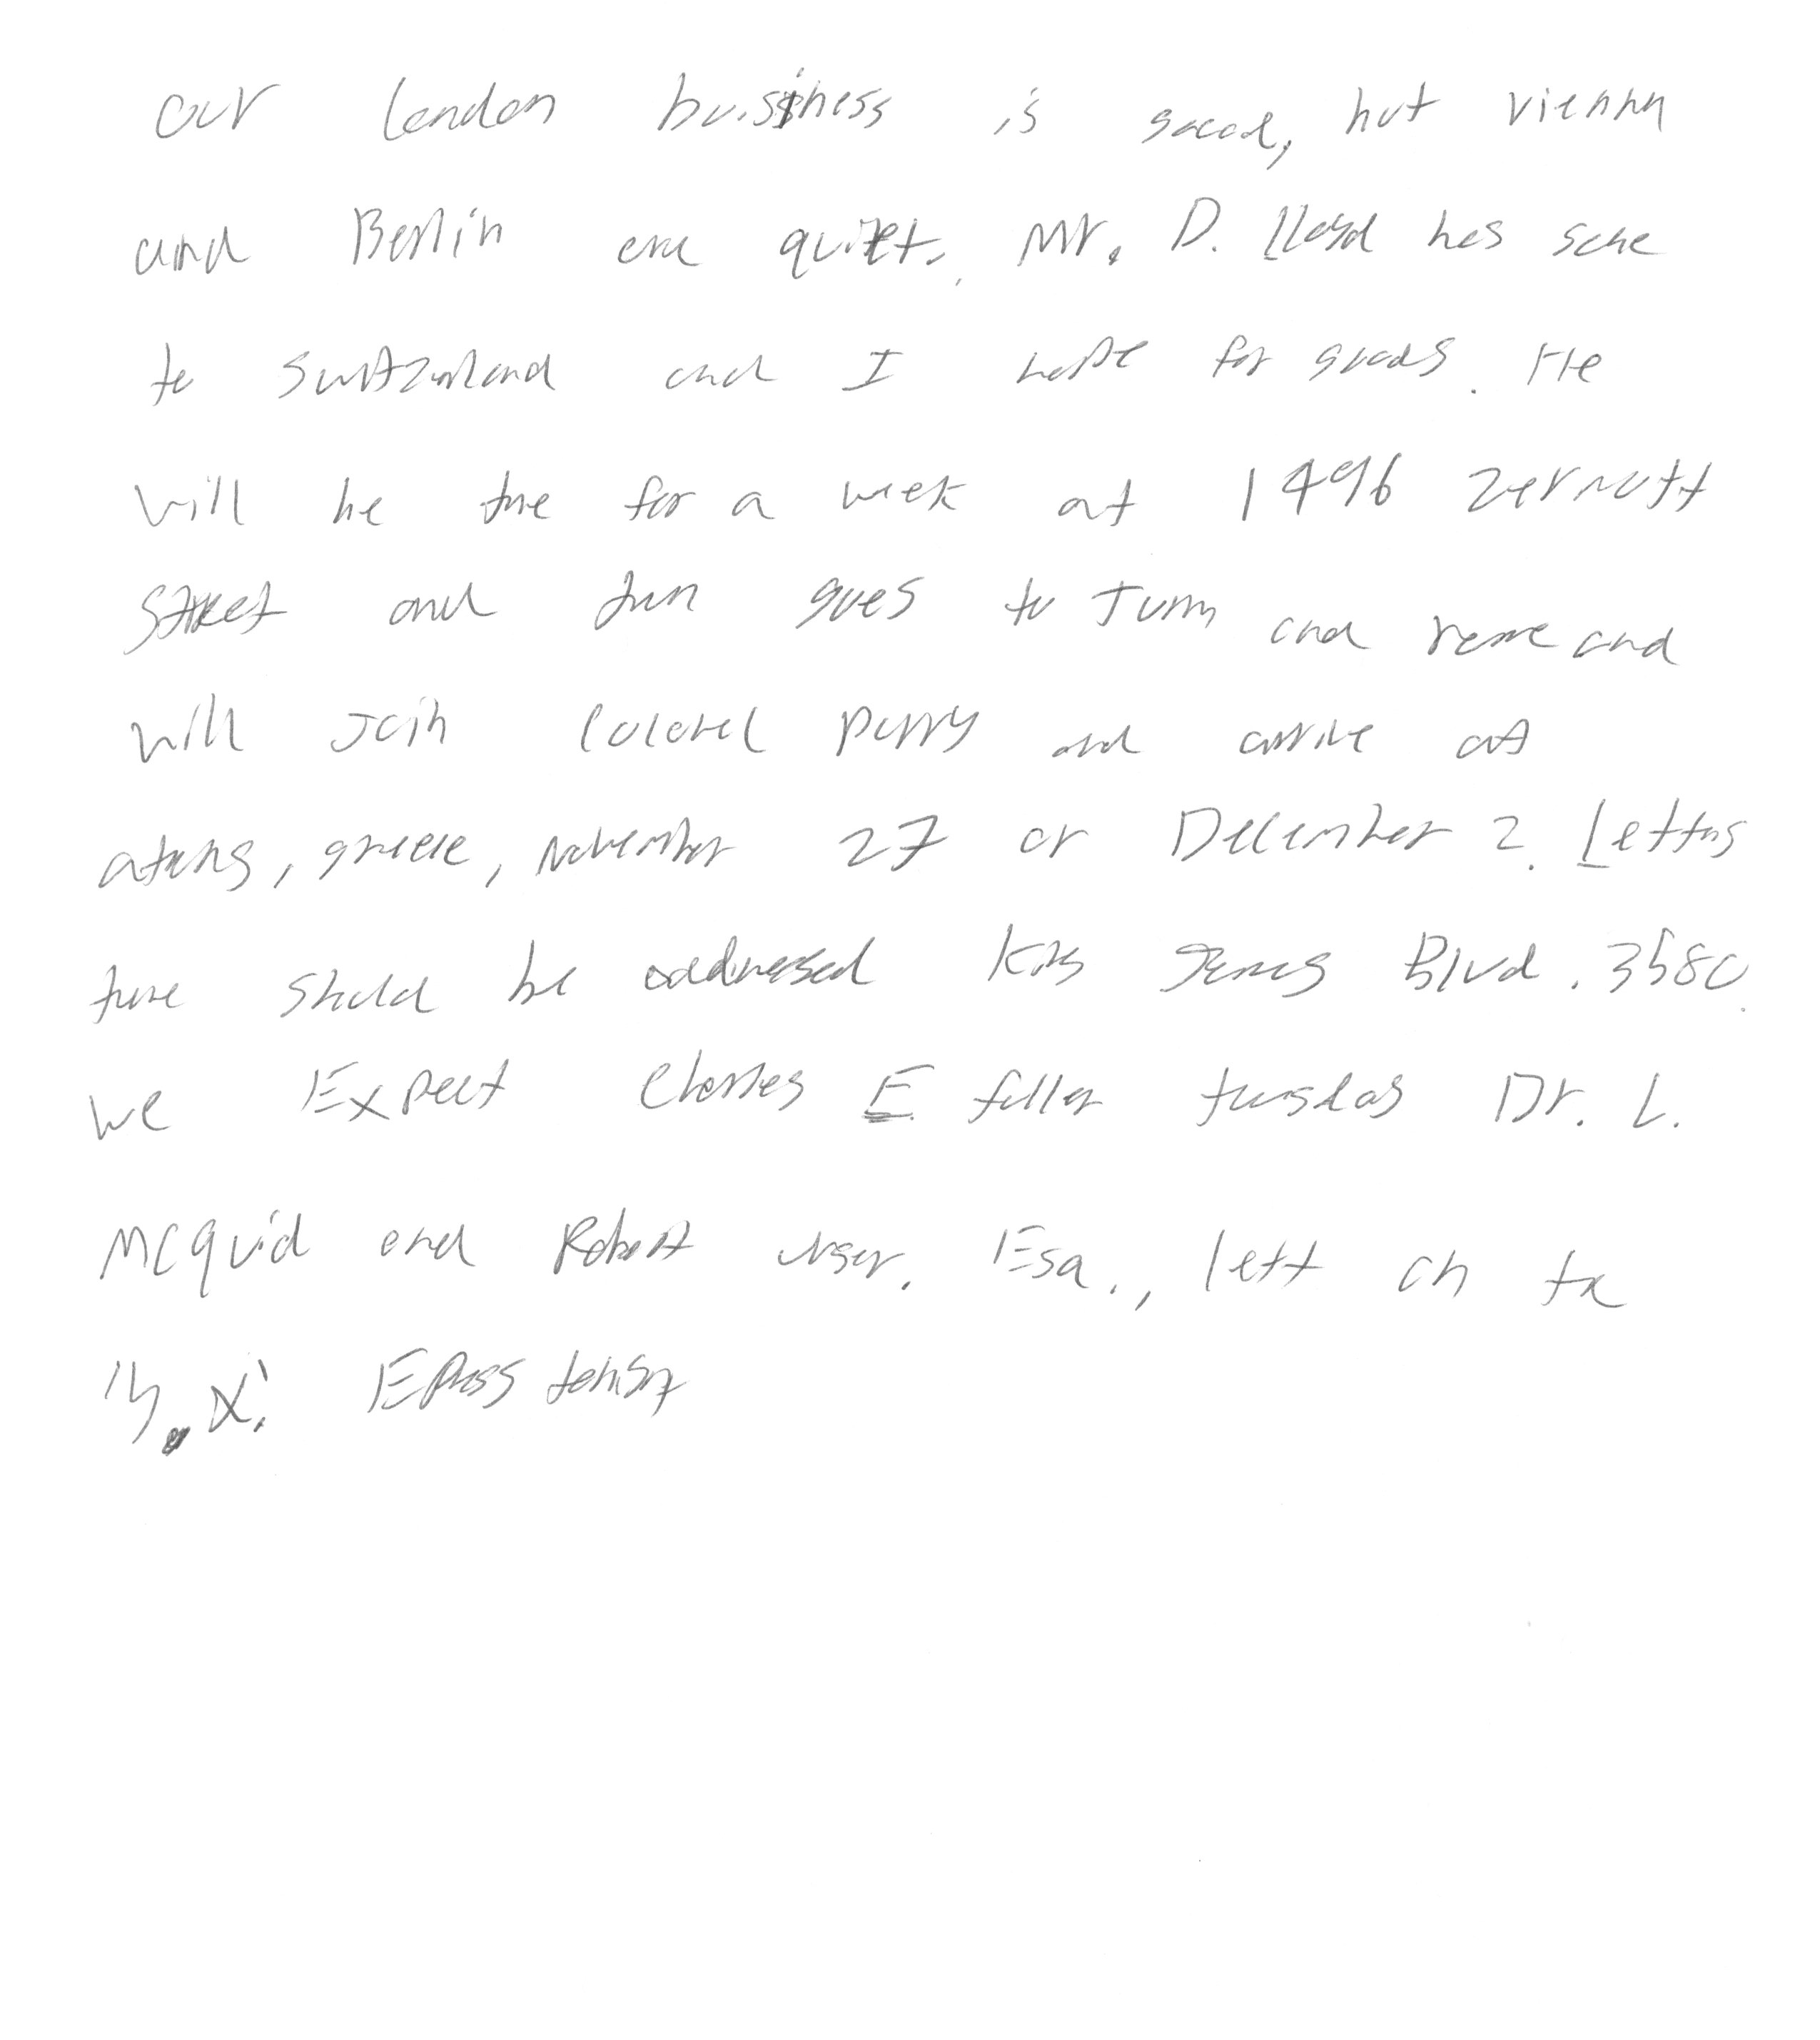 our london buisiness is good, but vienna
and Berlin are quiet. Mr. D. Lloyd has gone
to switzerland and I hope for goods. He
will be there for a week at 1496 zermott
street and then goes to Turin and rome and
will join colonel perry and arrive at
athens, greece, november 27 or December 2. Letters
there should be addressed King James Blvd. 3580.
we Expect charles E fuller tuesday Dr. L.
McQuid and Robert unger. Esq., left on the
"Y. X." Express tonight